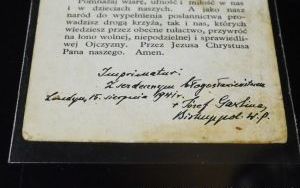 Pomnażaj wiarę, ufność i miłość w nas
i w dzieciach naszych. A jako nasz
naród do wypełnienia posłannictwa pro-
wadzisz drogą krzyża, tak i nas, których
wiedziesz przez obecne tułactwo, przywróć
na łono wolnej, niepodzielnej i sprawiedli-
wej Ojczyzny. Przez Jezusa Chrystusa
Pana naszego. Amen.
Imprimatur:
Z serdecznym błogosławieństwem
Londyn, 15. sierpnia 1941 r.
+ Józef Gawlina,
Biskup pol. W.P.